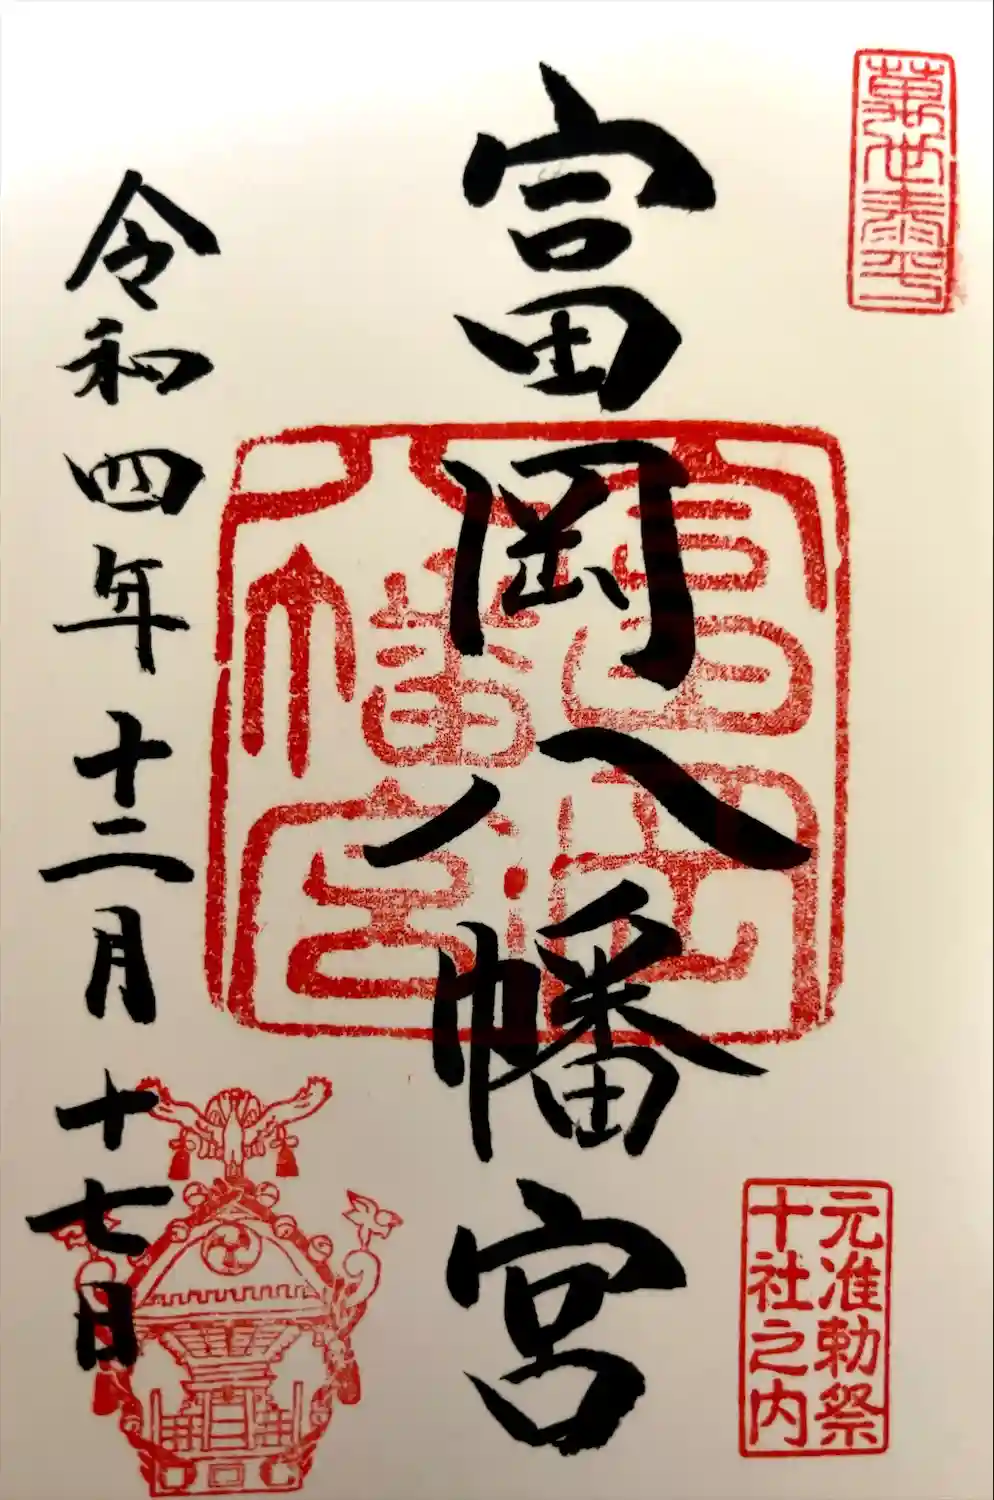 萬世泰平
富岡八幡宮
富岡
八幡宮
元准勅祭
十社之内
令和四年十二月十七日